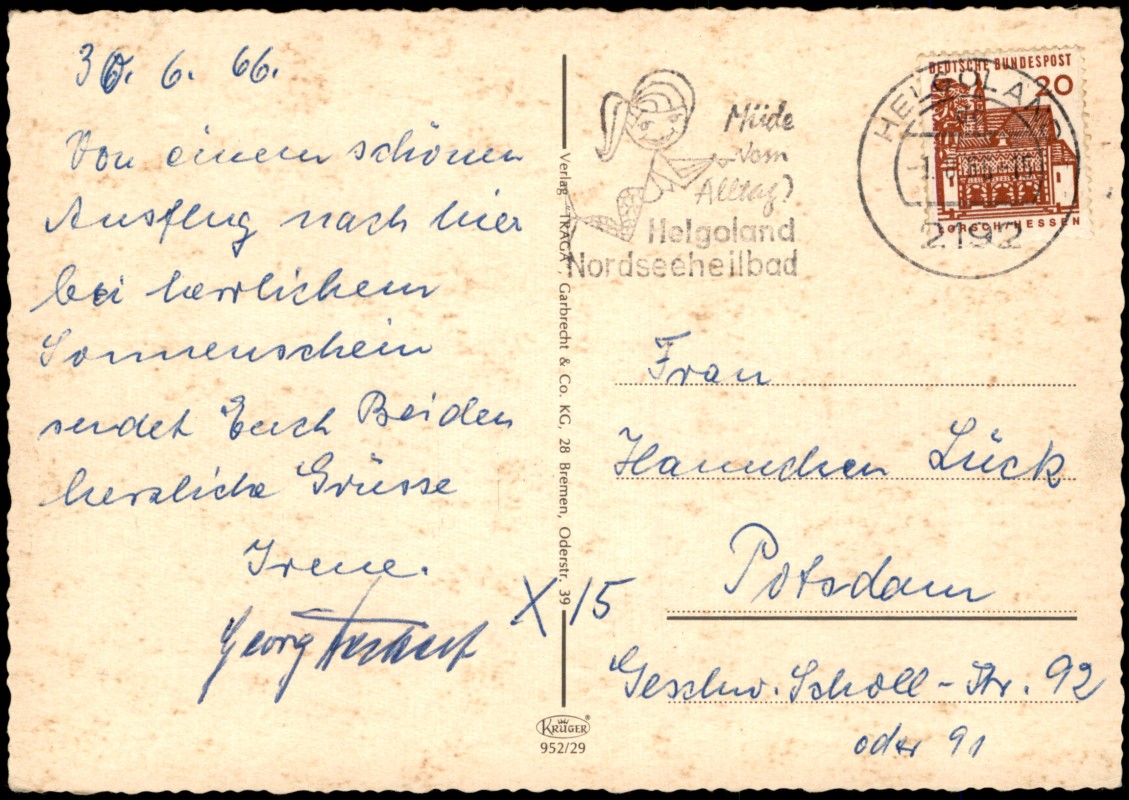 30. 6. 66.
Von einem schönen
Ausflug nach hier
bei herrlichem
Sonnenschein
sendet Euch Beiden
herzliche Grüsse
Irene.
Georg
Verlag TRAGA, Garbrecht & Co. KG, 28 Bremen, Oderstr. 39
X 15
KRÜGER
952/29
Müde
vom
Alltag?
Helgoland
Nordseeheilbad
HELGOLAND
2192
DEUTSCHE BUNDESPOST
20
LORSCH/HESSEN
Frau
Hannchen Lück
Potsdam
Geschw. Scholl-Str. 92
oder 91